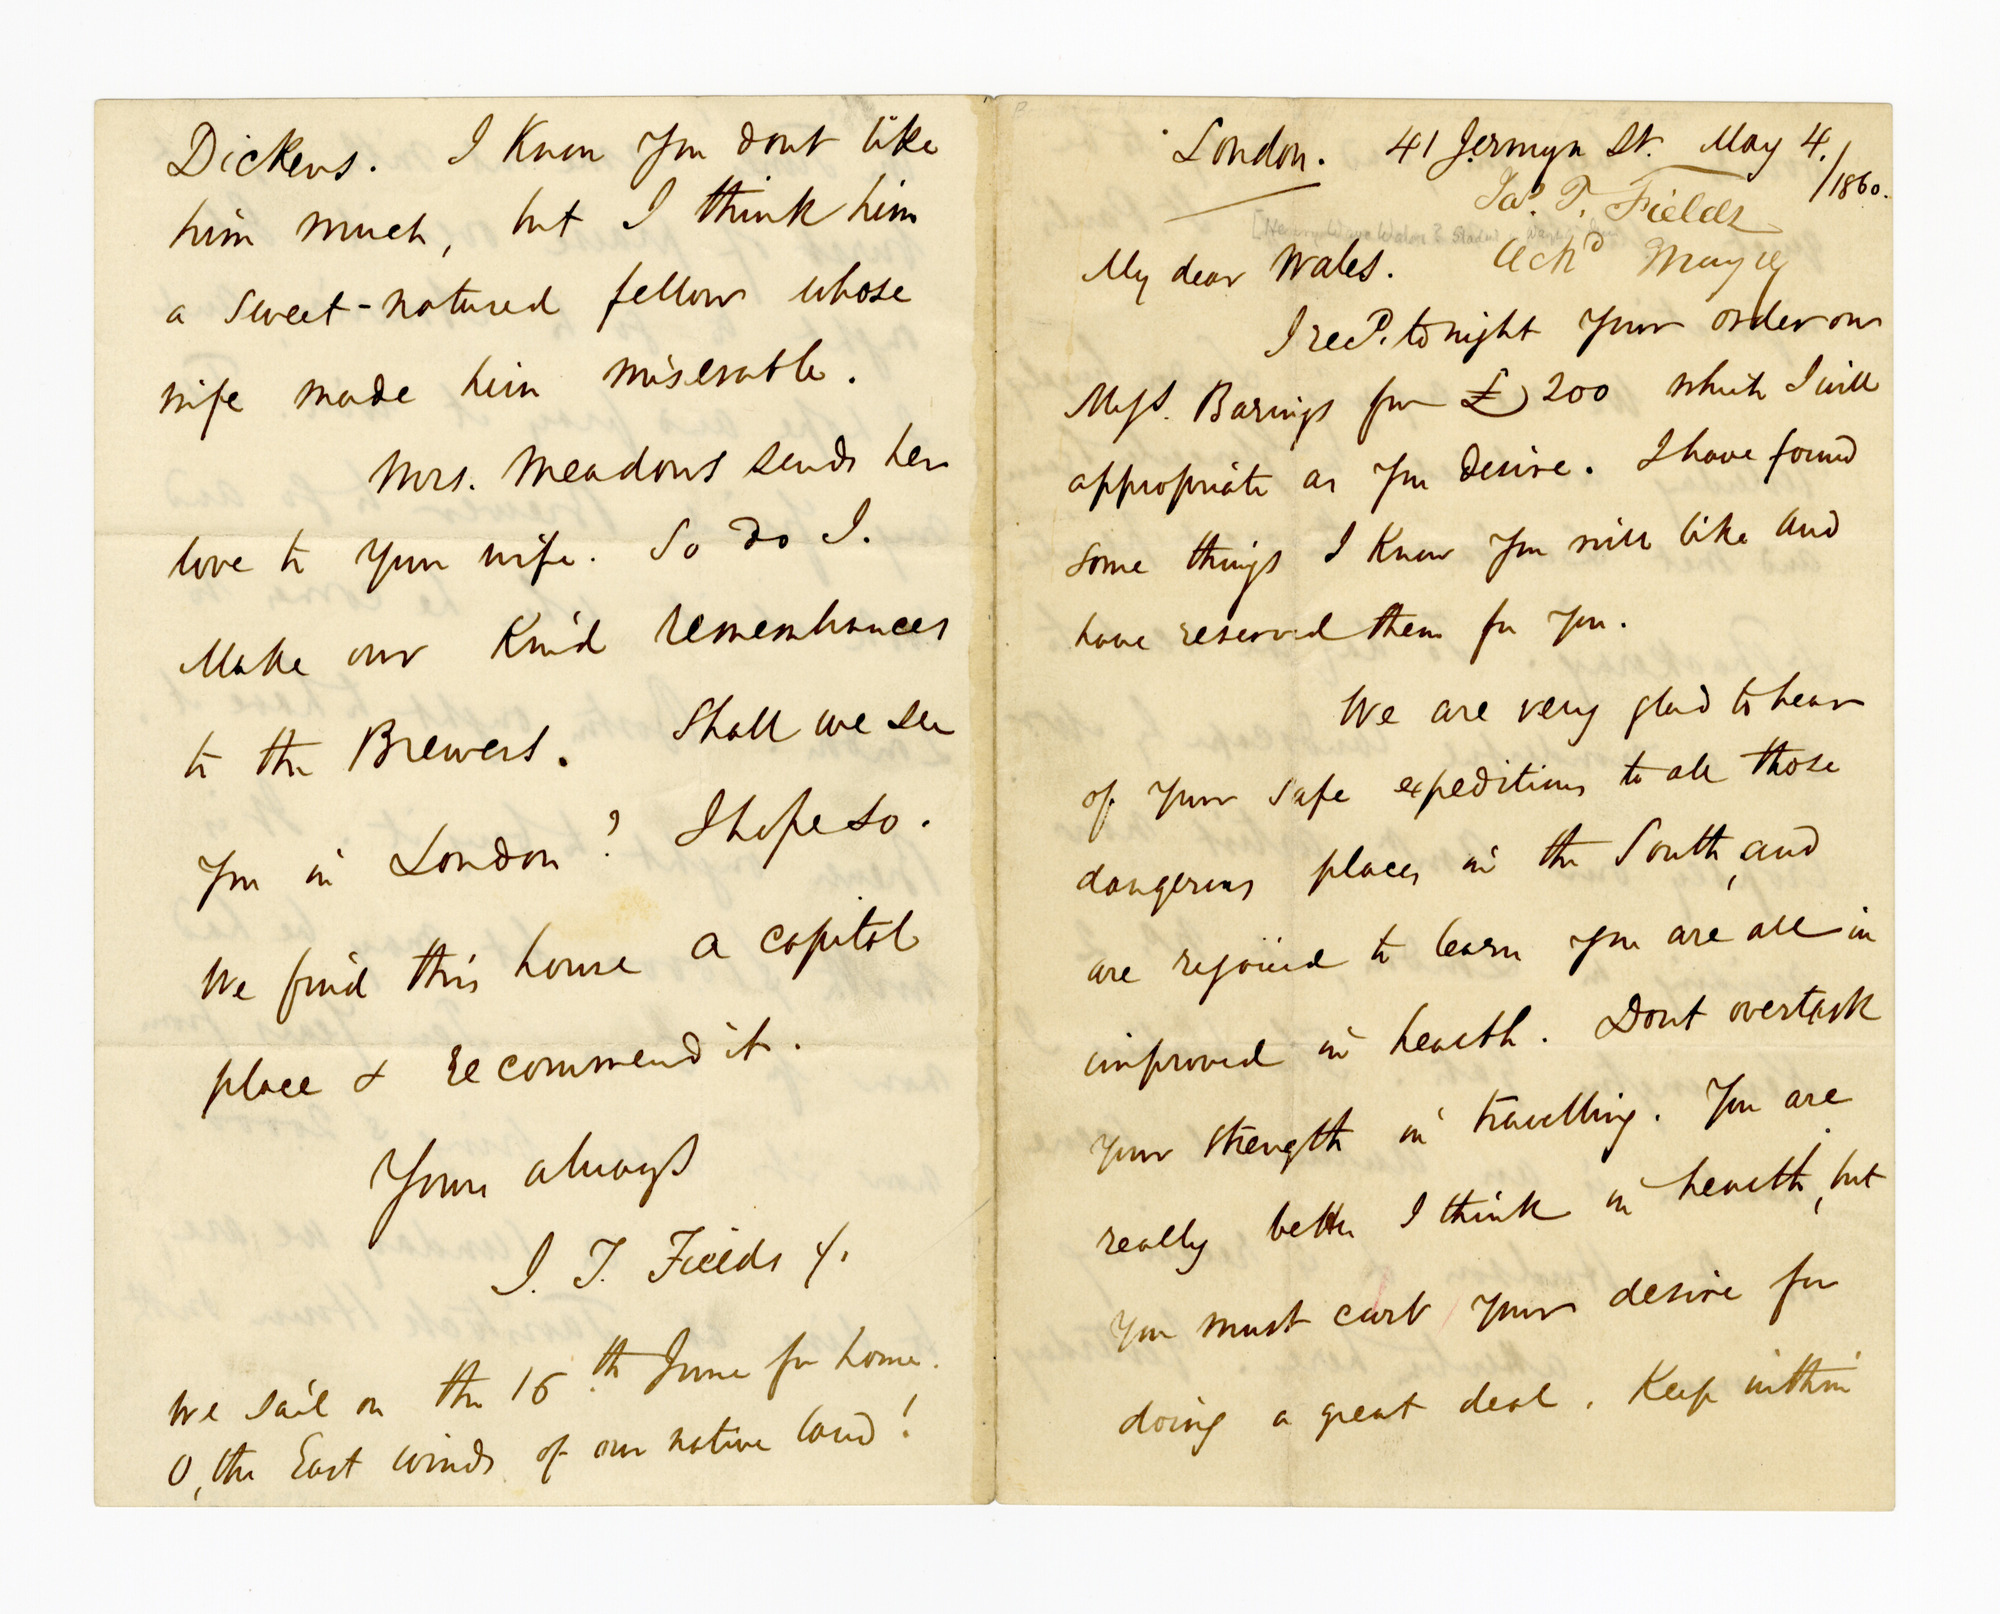 London. 41 Jermyn St. May 4./1860.
Jas. T. Fields
[Henry Ware Wales?
My dear Wales. Ackd May
I recd. tonight your order on
Messs. Barings for £200 which I will
appropriate as you desire. I have found
some things I know you will like and
have reserved them for you.
We are very glad to hear
of your safe expeditions to all those
dangerous places in the South, and
are rejoiced to learn you are all in
improved in health. Dont overtask
your strength in travelling. You are
really better I think in health, but
you must curb your desire for
doing a great deal. Keep within
Dickens. I know you dont like
him much, but I think him
a sweet-natured fellow whose
wife made him miserable.
Mrs. Meadows sends her
love to your wife. So do I.
Make our kind remembrances
to the Brewers. Shall we see
you in London? I hope so.
We find this house a capital
place & recommend it.
Yours always
J. T. Fields
We sail on the 16th June for home.
O, the East winds of our native land!